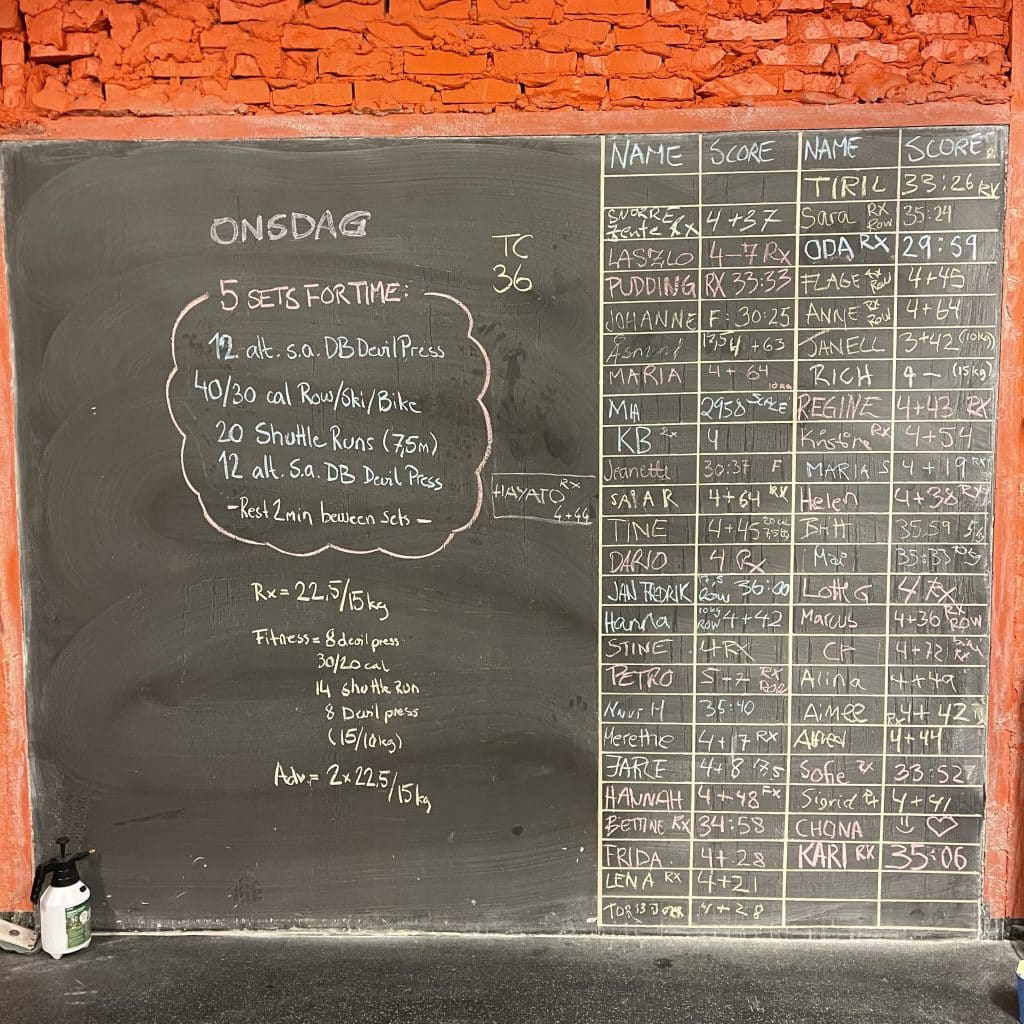 ONSDAG
TC
36
5 SETS FOR TIME:
12 alt. s.a. DB Devil Press
40/30 cal Row/Ski/Bike
20 Shuttle Runs (7,5m)
12 alt. s.a. DB Devil Press
- Rest 2 min beween sets -
HAYATO RX
4+44
Rx = 22,5/15 kg
Fitness = 8 devil press
30/20 cal
14 shuttle Run
8 Devil press
(15/10kg)
Adv. = 2x22,5/15 kg
NAME SCORE NAME SCORE
TIRIL 33:26 RX
SNORRE 4+37 Sara RX Row 35:24
LASZLO 4-7 RX ODA RX 29:59
PUDDING RX 33:33 FLAGE Row 4+45
JOHANNE F: 30:25 ANNE RX Row 4+64
4+63 JANELL 3+42 (10kg)
MARIA 4+64 RICH 4 - (15kg)
MIA 2958 SCALE REGINE 4+43 RX
KB Rx 4 Kristina RX 4+54
Jeanette 30:37 F MARIA S 4+19 RX
SAIAR 4+64 RX Helen 4+38 RX
TINE 4+45 35.59
DARIO 4 Rx Mai 35:33
JAN FREDRIK ROW 36:00 4 RX
Hanna 10kg ROW 4+42 Marcus 4+36 RX ROW
STINE 4 RX CH 4+72 RX
PETRO 5-7 RX Row Alina 4+49
35:40 AiMEE 4+42
Merethe 4+17 RX 4+44
JARLE 4+8 17,5 Sofie Rx 33:52
HANNAH 4+48 Sigrid Rx 4+41
BETTINE RX 34:58 CHONA
FRIDA 4+28 KARI RX 35:06
LENA RX 4+21
4+28